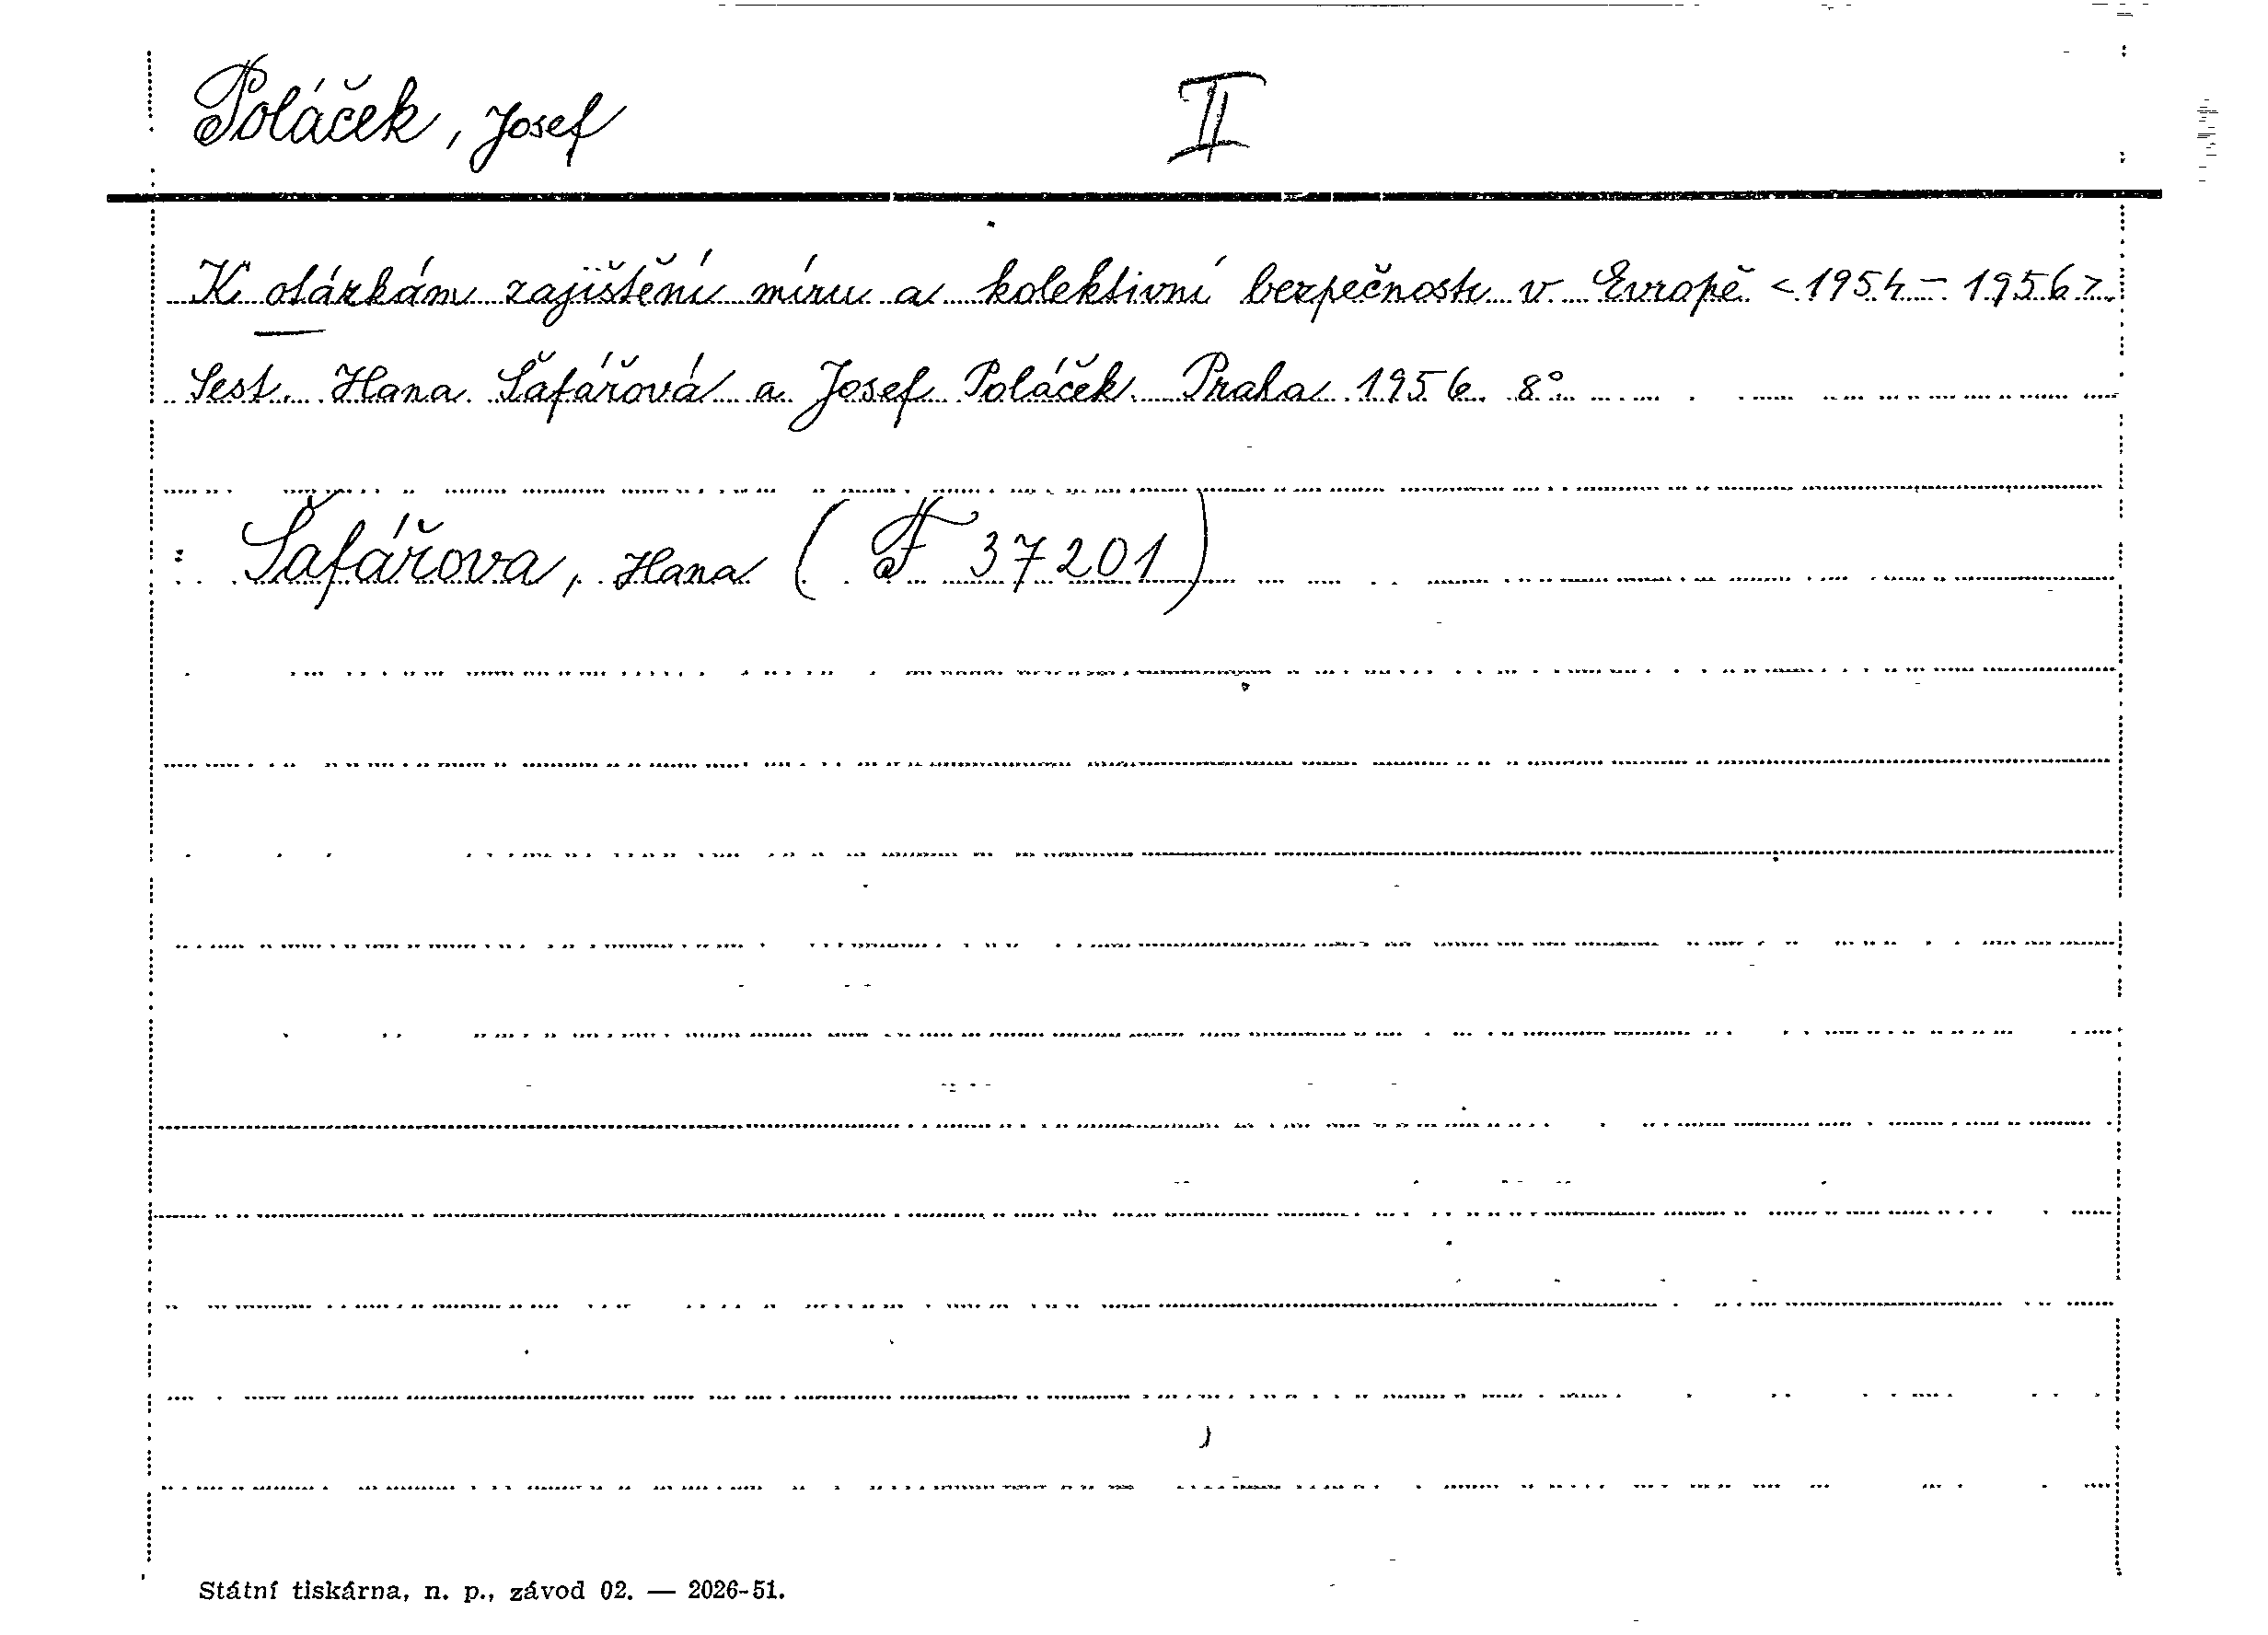 Poláček, Josef II
K otázkám zajištění míru a kolektivní bezpečnosti v Evropě <1954-1956>.
Sest. Hana Šafářová a Josef Poláček. Praha 1956. 8°.
: Šafářova, Hana (F 37201)
Státní tiskárna, n. p., závod 02. — 2026-51.